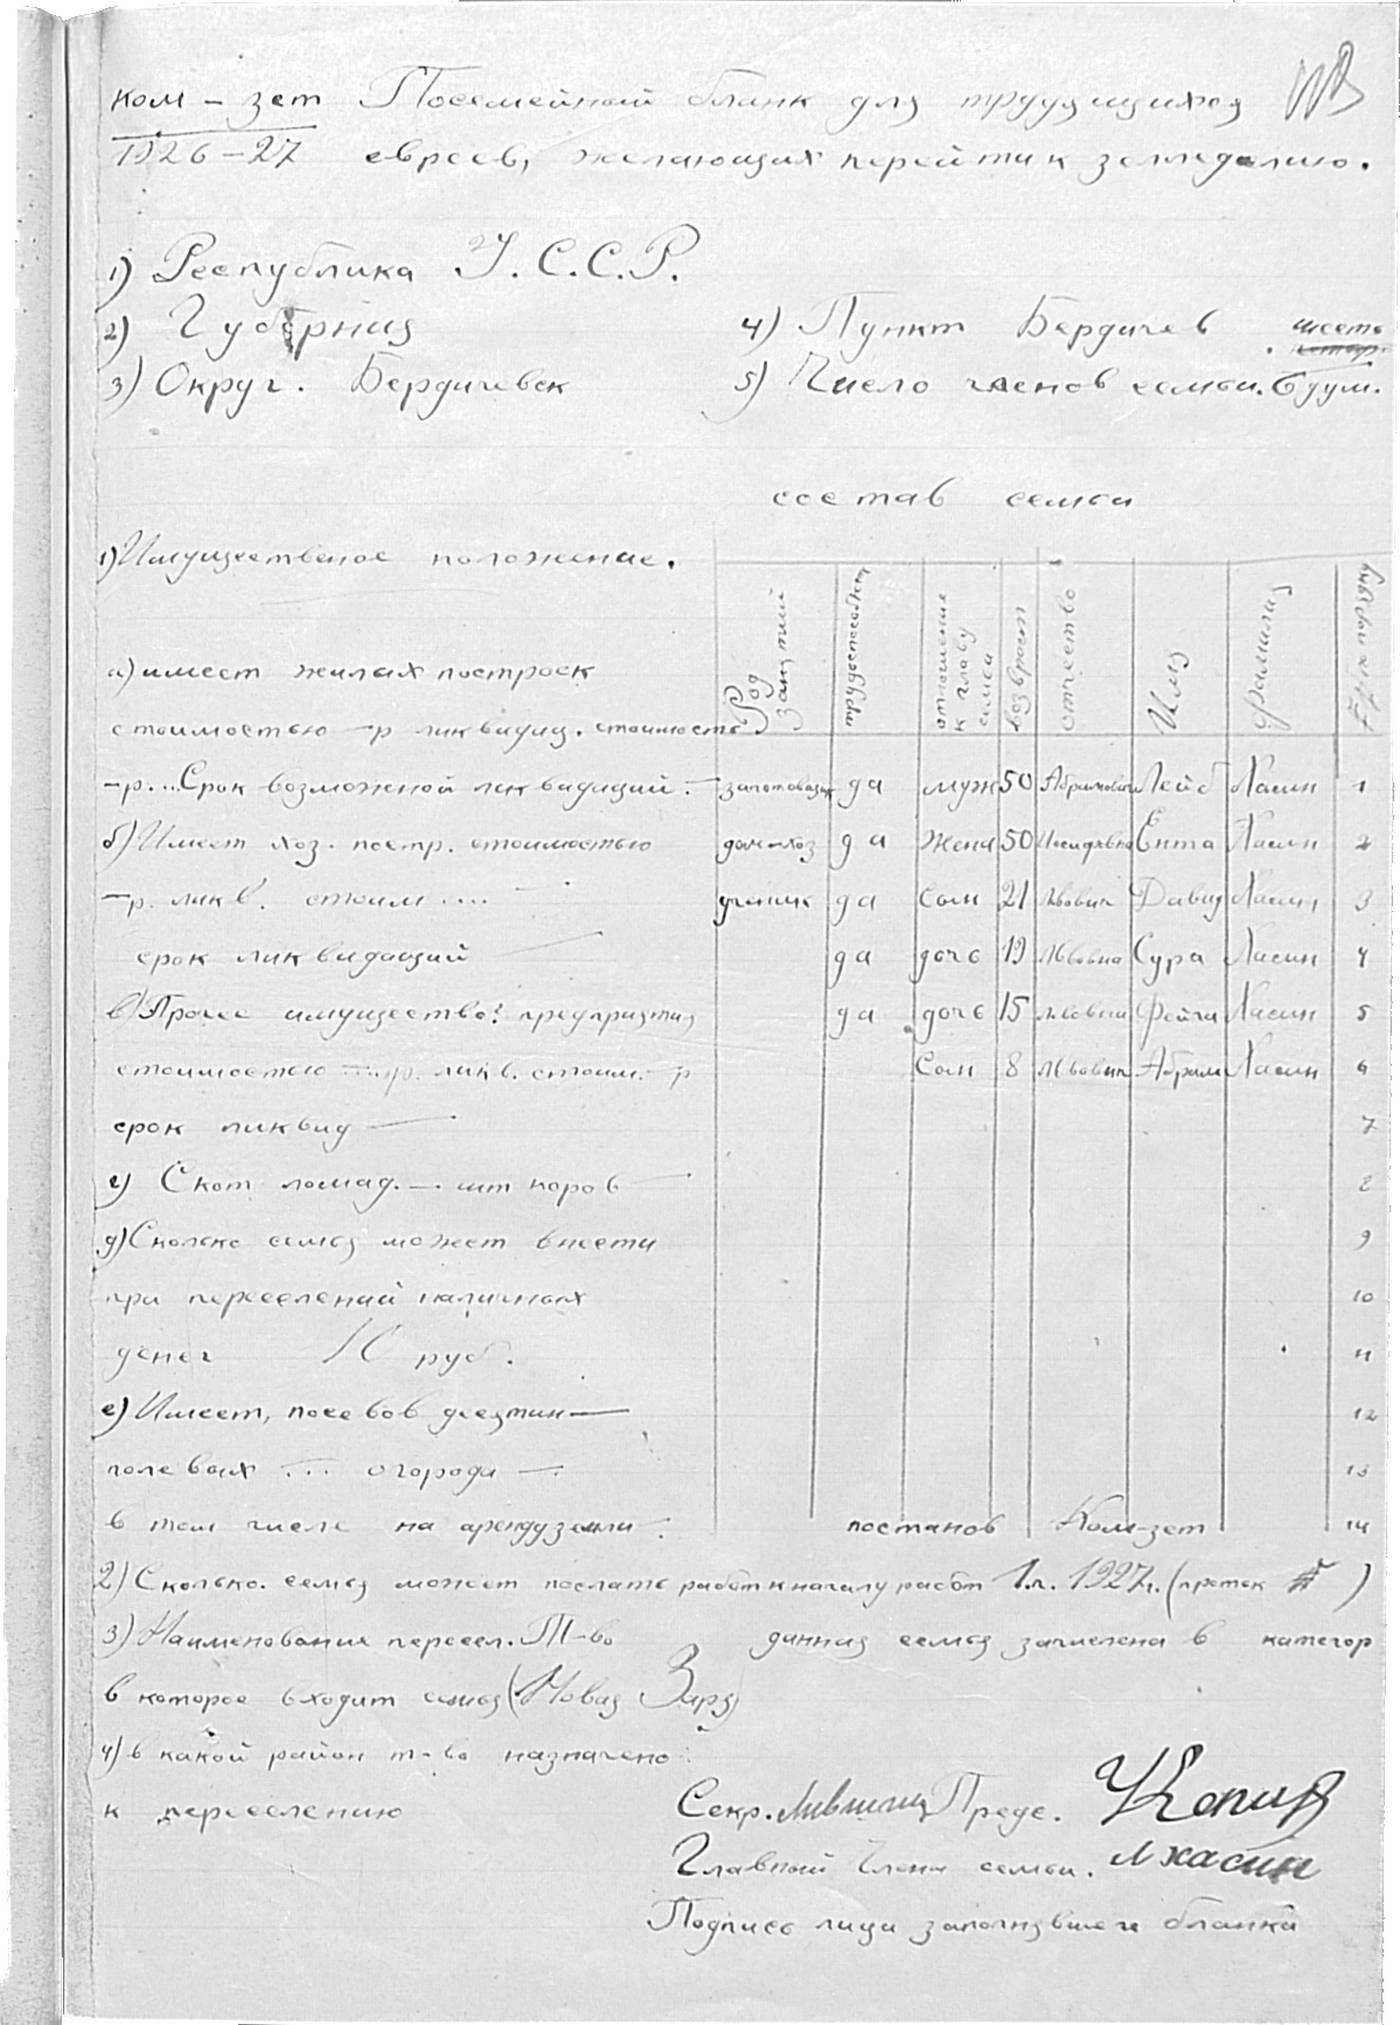 ком – зет Посемейный бланк для трудящихся
1926–27 евреев, желающих перейти к земледелию.
1) Республика У.С.С.Р.
2) Губерния
3) Округ. Бердичевск
4) Пункт Бердичев
шесть
5) Число членов семьи. 6 душ.
состав семьи
1) Имущественое положение.
Род занятий трудоспособност отношение к главу семьи возраст отчество Имя Фамилия № по порядку
а) имеет жилых построек
стоимостью –р ликвидац. стоимость
–р.... Срок возможной ликвидаций. –
заготовщик да муж 50 Абрамович Лейб Хасин 1
б) Имеет хоз. постр. стоимостью
дом–хоз да жена 50 Иосифовна Ента Хасин 2
–р. ликв. стоим ....
ученик да сын 21 Львович Давид Хасин 3
срок ликвидаций
да дочь 19 Львовна Сура Хасин 4
в) Прочее имущество: предприятия
да дочь 15 Львовна Фейга Хасин 5
стоимостью ....р. ликв. стоим. – р
сын 8 Львович Абрам Хасин 6
срок ликвид —
7
г) Скот лошад. –. шт коров
8
д) Сколько семья может внести
9
при переселений наличных
10
денег 10 руб.
11
е) Имеет, посевов десятин —
12
полевых ... огорода —.
13
в том числе на аренду земли –.
постанов Ком–зет 14
2) Сколько. семья может послать работ к началу работ 1.м. 1927 г. (
3) Наименование пересел. Т–во
данная семья зачислена в категор
в которое входит семья (Новая Заря)
4) в какой район т–во назначено
к переселению
Секр. Лившиц Предс.
Главный Члена семьи. Л Хасин
Подпись лица заполнявшего бланка